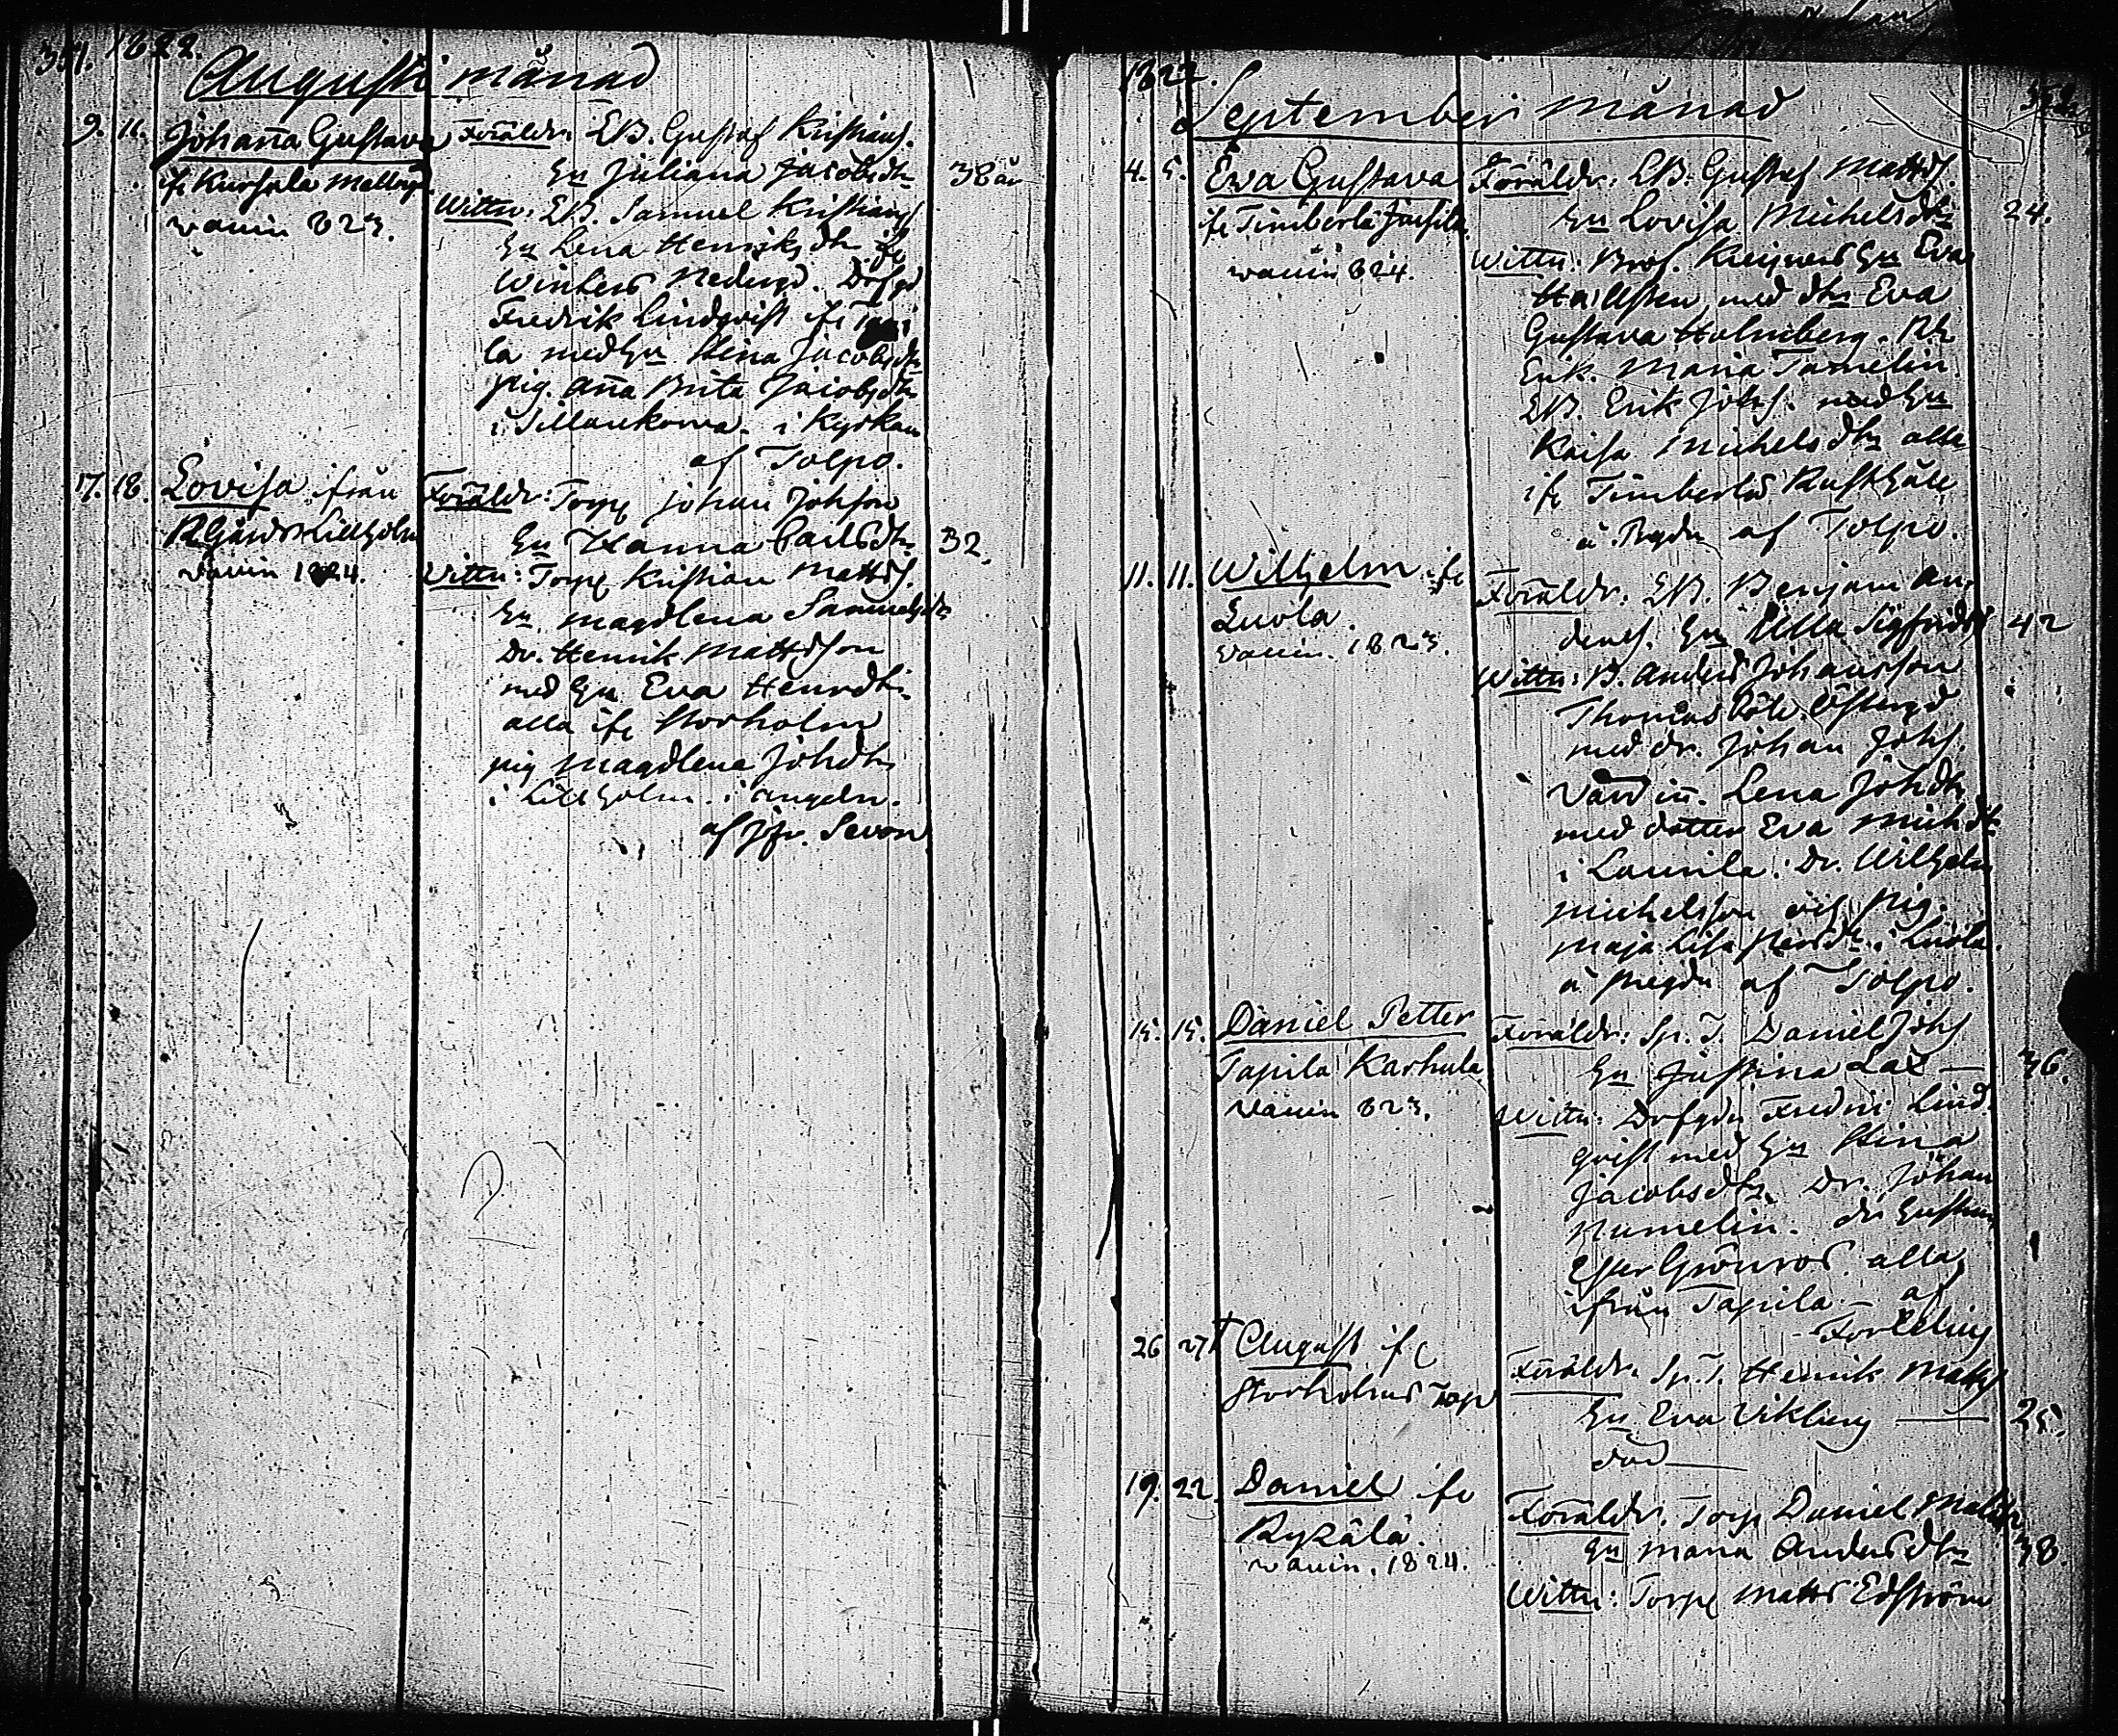 1822.
Augusti månad
9. 11. Johaña Gustava
ifr Kurkala Mellang
vaccin 823.
Föräldr. LB. Gustaf Kristians.
Hu Juliana Jacobsdtr 38 år
Wittn: LB. Samuel Kristians
Hu Lena Henriksdtr ifr
Winkers Nedergd. Drgd
Fredrik Lindqvist ifr Tapi
la med Hu Stina Jacobsdtr
pig. Aña Brita Jacobsdtr
i Sillankorva. i Kyrkan
af Tolpo.
17. 18. Lovisa ifrån
Lillholm
vaccin 1824.
Föräldr: Torp Johan Johsson
Hu Hanna Carlsdtr 32.
Vittn: Torp Kristian Mattss.
Hu Magdlena Samuelsdtr
Dr. Henrik Mattsson
med Hu Eva Henrdtr
alla ifr Storholm
pig Magdlena Johdtr
i Lillholm. i
af Sevon
1822.
September månad
4. 5. Eva Gustava
ifr Timberla
vaccin 824.
Föräldr: LB: Gustaf Mattss.
Hu Lovisa Michelsdtr 24.
Wittn: Hu Eva
Hallsten med dtr Eva
Gustava Holmberg.
Enk. Maria Tamelin.
LB. Erik Johs. med Hu
Kaisa Michelsdtr alla
ifr Timberla Rusthåll
af Tolpo.
11. 11. Wilhelm ifr
Luola.
vaccin. 1823.
Föräldr: LB. Benjam An-
ders. Hu Ulla Sigfridsd 42
Wittn: B. Anders Johansson
Thomas Östergd
med dr. Johan Johs.
Värdiñ. Lena Johdtr
med dotter Eva Michdtr
i Laurila. Dr. Wilhelm
Michelsson och Pig.
Maja Lisa i Luola.
af Tolpo.
15. 15. Daniel Petter
Tapila Karhula
vaccin 823.
Föräldr: Sp. T. Daniel Johs
Hu Justina 36.
Wittn: Fredric Lind-
qvist med Hu Stina
Jacobsdtr. Dr. Johan
Numelin.
Ester Grönroos. alla
ifrån Tapila — af
26 27 † August ifr
Storholms Torp
Föräldr. Sp. T. Henrik Matts
Hu Eva Vikberg — 25.
död —
19. 22. Daniel ifr
Kyrälä.
vaccin. 1824.
Föräldr. Torp Daniel Matts
Hu Maria Andersdtr 38.
Wittn: Torp Matts Edström